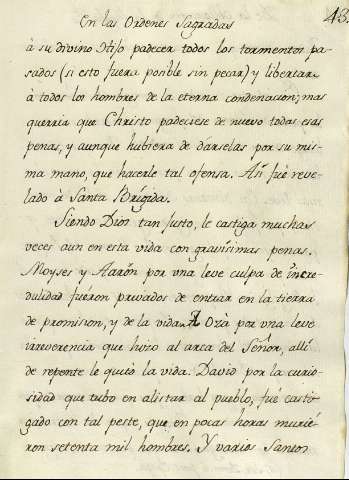 En las Ordenes Sagradas 43.
à su divino Hijo padecer todos los tormentos pa-
sados (si esto fuera posible sin pecar) y libertara
à todos los hombres de la eterna condenacion; mas
querria que Christo padeciese de nuevo todas esas
penas, y aunque hubiera de dárselas por su mis-
ma mano, que hacerle tal ofensa. Asi fué reve-
lado à Santa Brígida.
Siendo Dios tan justo, le castiga muchas
veces aun en esta vida con gravisimas penas.
Moyses y Aarón por vna leve culpa de incre-
dulidad fuéron privados de entrar en la tierra
de promision, y de la vida. A Ozà por vna leve
irreverencia que hizo al arca del Señor, allí
de repente le quitò la vida. David por la curio-
sidad que tubo en alistar al pueblo, fué casti-
gado con tal peste, que en pocas horas murié-
ron setenta mil hombres. Y varios Santos